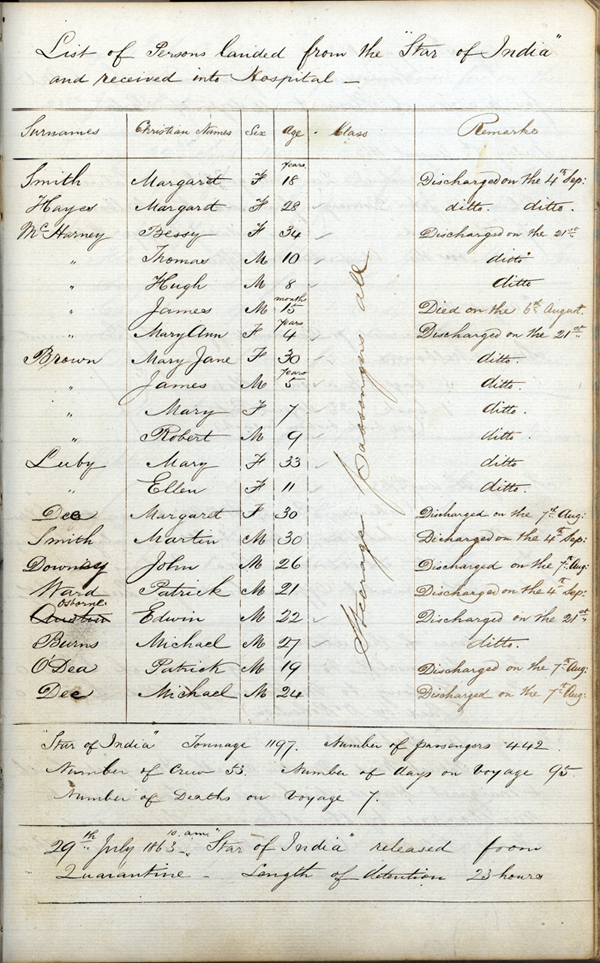 List of Persons landed from the "Star of India"
and received into Hospital —
Surnames Christian Names Sex Age Class Remarks
years
Smith Margaret F 18 Discharged on the 4th Sep:
Hayes Margaret F 28 ditto. ditto.
McHarney Bessy F 34 Discharged on the 21st.
" Thomas M 10 ditto
" Hugh M 8 ditto
month
" James M 15 Died on the 6th August.
years
" Mary Ann F 4 Discharged on the 21st.
Brown Mary Jane F 30 ditto.
years
" James M 5 ditto.
" Mary F 7 ditto.
" Robert M 9 ditto.
Luby Mary F 33 ditto
" Ellen F 11 ditto.
Dee Margaret F 30 Discharged on the 7th Aug:
Smith Martin M 30 Discharged on the 4th Sep:
Downey John M 26 Discharged on the 7th Aug:
Ward Patrick M 21 Discharged on the 4th Sep:
Osborne
Austin Edwin M 22 Discharged on the 21st.
Burns Michael M 27 ditto.
O'Dea Patrick M 19 Discharged on the 7th Aug:
Dee Michael M 24 Discharged on the 7th Aug:
Steerage Passengers all
"Star of India" Tonnage 1197. Number of passengers 442.
Number of Crew 53. Number of days on Voyage 95
Number of Deaths on Voyage 7.
10. am
29th July 1863 – "Star of India" released from
Quarantine – Length of detention 23 hours